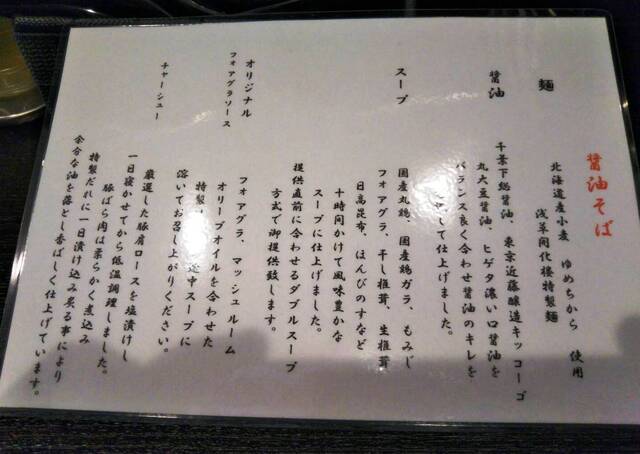 醤油そば
麺
北海道産小麦 ゆめちから 使用
浅草開化楼特製麺
醤油
千葉下総醤油、東京近藤醸造キッコーゴ
丸大豆醤油、ヒゲタ濃い口醤油を
バランス良く合わせ醤油のキレを
して仕上げました。
スープ
国産丸鶏、国産鶏ガラ、もみじ
フォアグラ、干し椎茸、生椎茸
日高昆布、ほんびのすなど
十時間かけて風味豊かな
スープに仕上げました。
提供直前に合わせるダブルスープ
方式で御提供致します。
オリジナル
フォアグラソース
フォアグラ、マッシュルーム
オリーブオイルを合わせた
特製 途中スープに
溶いてお召し上がりください。
チャーシュー
厳選した豚肩ロースを塩漬けし
一日寝かせてから低温調理しました。
豚ばら肉は柔らかく煮込み
特製だれに一日漬け込み炙る事により
余分な油を落とし香ばしく仕上げています。